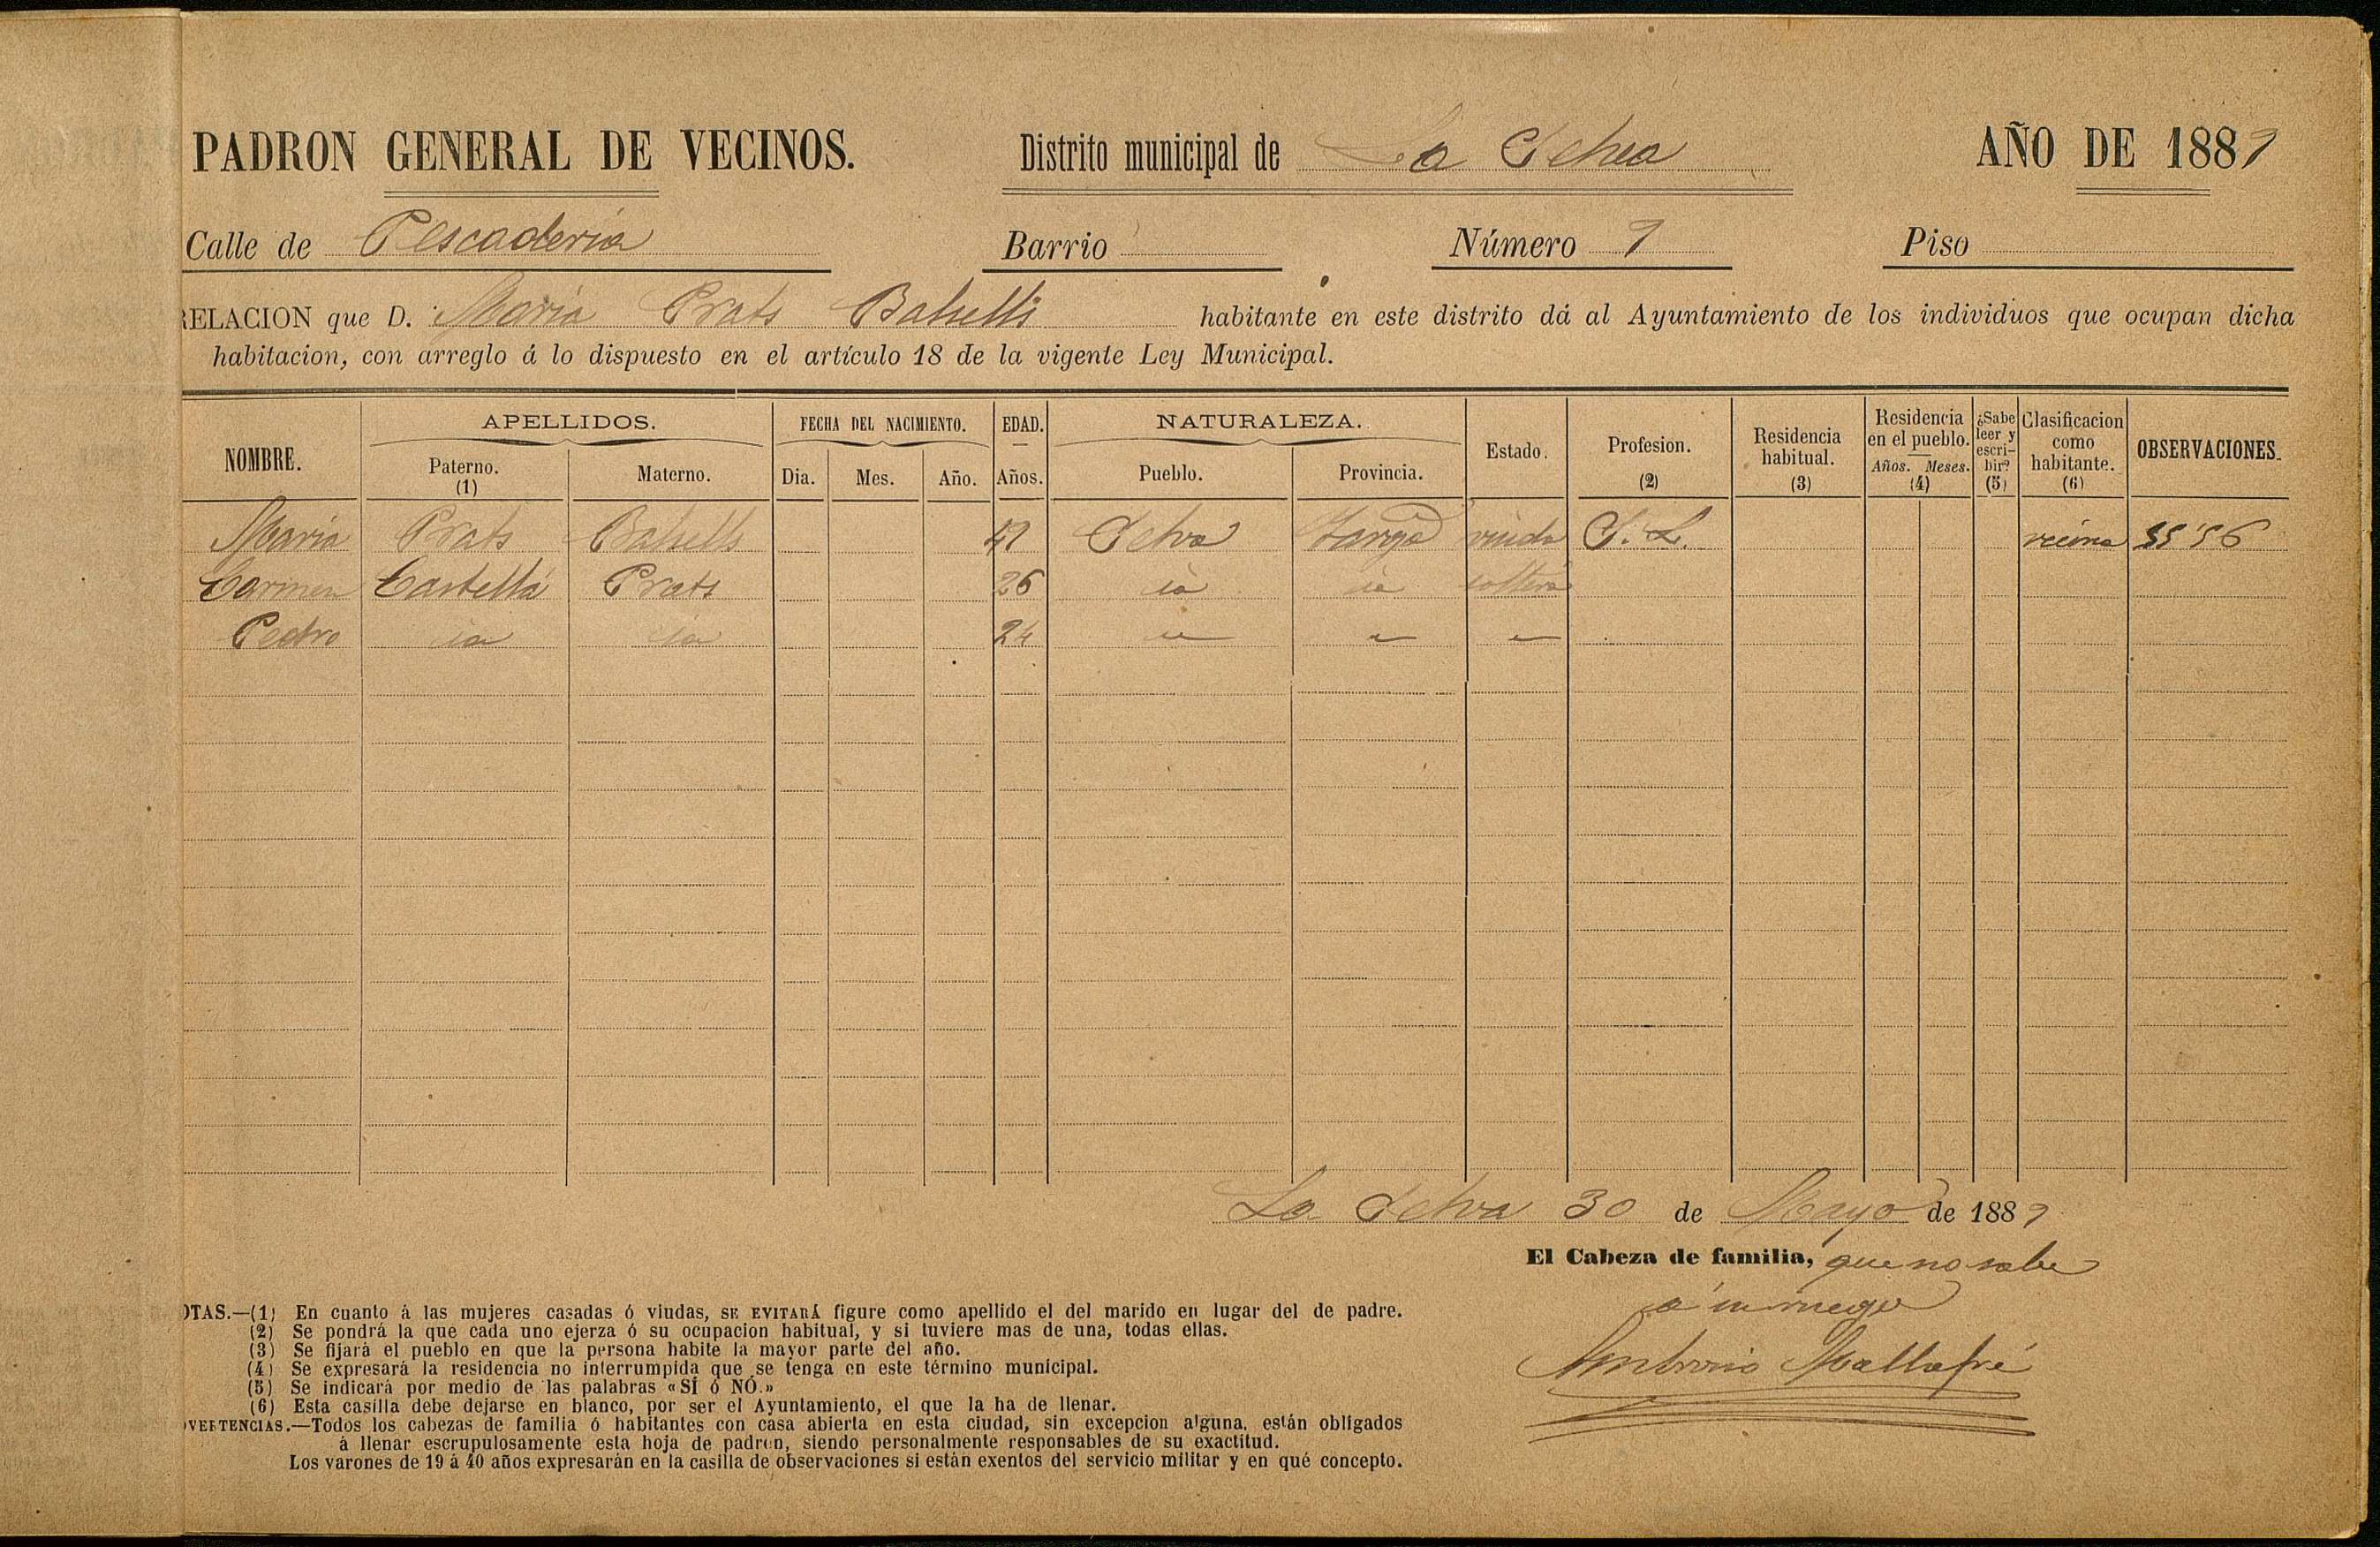 PADRON GENERAL DE VECINOS. Distrito municipal de La Selva AÑO DE 1889
Calle de Pescaderia Barrio Número 9 Piso
RELACION que D. Maria Prats Balsells habitante en este distrito dá al Ayuntamiento de los individuos que ocupan dicha
habitacion, con arreglo á lo dispuesto en el artículo 18 de la vigente Ley Municipal.
NOMBRE. APELLIDOS. Paterno. (1) Materno. FECHA DEL NACIMIENTO. Dia. Mes. Año. EDAD. Años. NATURALEZA. Pueblo. Provincia. Estado. Profesion. (2) Residencia habitual. (3) Residencia en el pueblo. Años. Meses. (4) ¿Sabe leer y escribir? (5) Clasificacion como habitante. (6) OBSERVACIONES.
Maria Prats Balsells Selva Tarrgª viuda S. L. vecina
Carmen Castellá Prats 26 id id soltera
Pedro id id 24 " " "
La Selva 30 de Mayo de 1889
El Cabeza de familia, que no sabe
á su ruego
Ambrosio Mallafré
OTAS.—(1) En cuanto á las mujeres casadas ó viudas, SE EVITARÁ figure como apellido el del marido en lugar del de padre.
(2) Se pondrá la que cada uno ejerza ó su ocupacion habitual, y si tuviere mas de una, todas ellas.
(3) Se fijará el pueblo en que la persona habite la mayor parte del año.
(4) Se expresará la residencia no interrumpida que se tenga en este término municipal.
(5) Se indicará por medio de las palabras «SÍ ó NÓ.»
(6) Esta casilla debe dejarse en blanco, por ser el Ayuntamiento, el que la ha de llenar.
VERTENCIAS.—Todos los cabezas de familia ó habitantes con casa abierta en esta ciudad, sin excepcion alguna, están obligados
á llenar escrupulosamente esta hoja de padron, siendo personalmente responsables de su exactitud.
Los varones de 19 á 40 años expresarán en la casilla de observaciones si están exentos del servicio militar y en qué concepto.